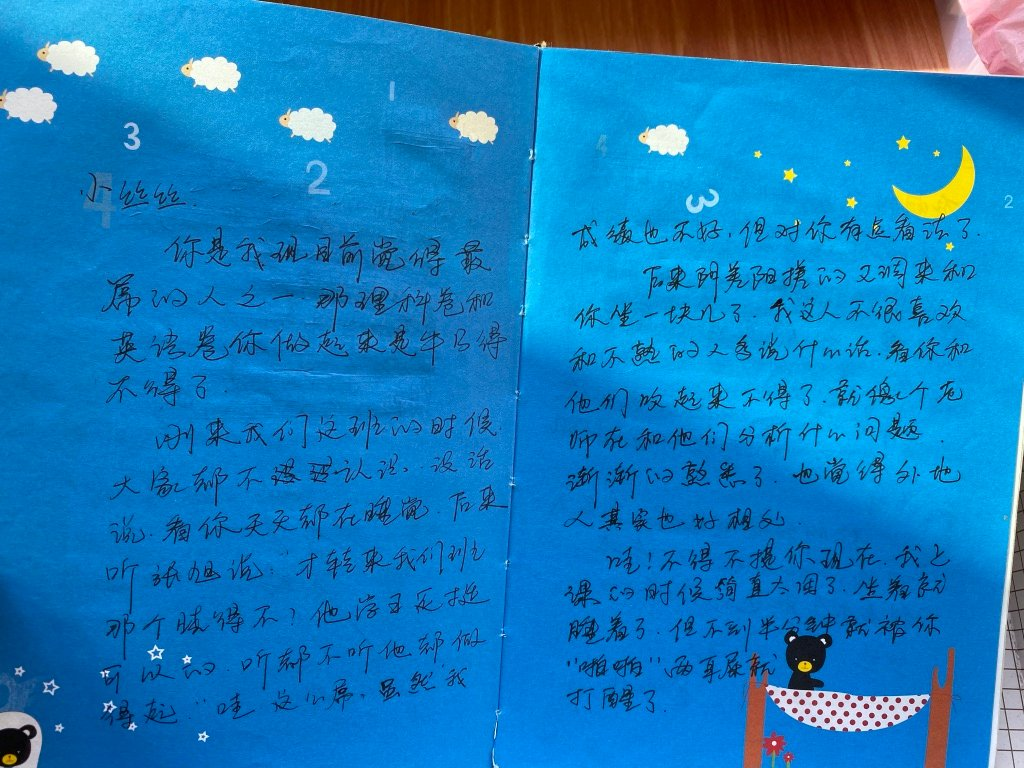 3
1
2
4
小丝丝
你是我现目前觉得最
屌的人之一.那理科卷和
英语卷你做起来是牛B得
不得了.
刚来我们这班的时候
大家都不认识,说话
说.看你天天都在睡觉.后来
听 旭说:"才转来我们班
那个晓得不?他 王死
可以的.听都不听他都做
得起."哇 这么屌.虽然我
4
3
2
成绩也不好,但对你有点看法了.
后来阴差阳搓的又调来和
你坐一块儿了.我这人不很喜欢
和不熟的人多说什么话.看你和
他们 起来不得了.就像个老
师在和他们分析什么问题.
渐渐的熟悉了.也觉得外地
人其实也好相处.
哇!不得不提你现在.我上
课的时候简直太困了.坐着就
睡着了.但不到半分钟就被你
"啪啪"两耳屎就
打醒了.